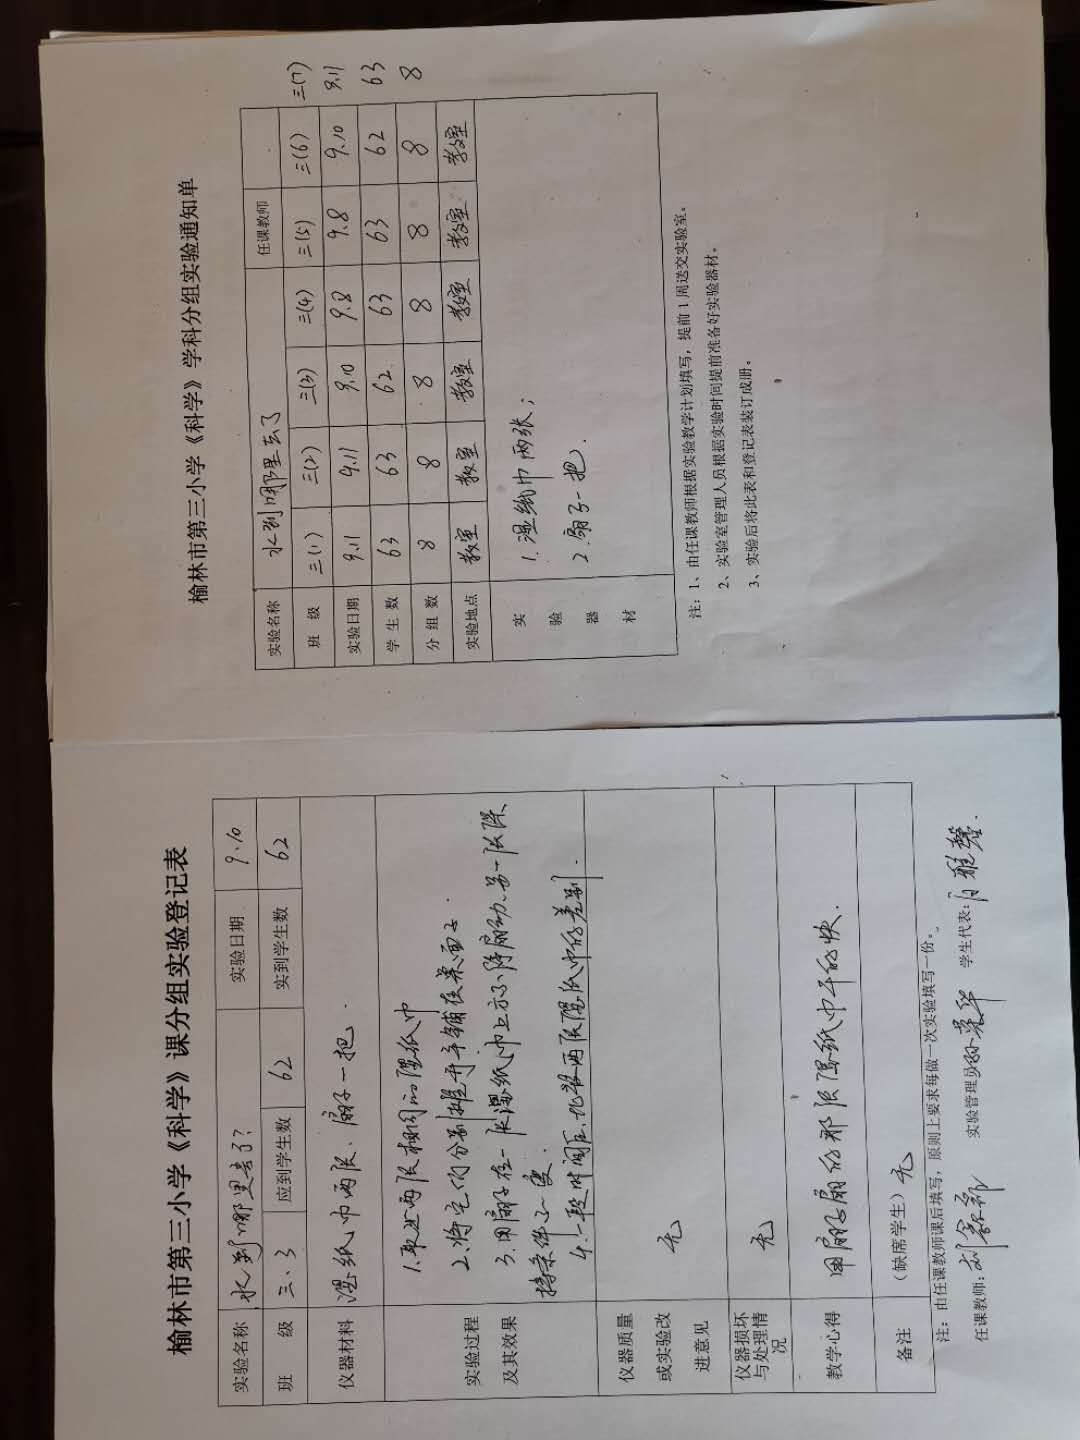 榆林市第三小学《科学》课分组实验登记表
实验名称 水到哪里去了? 实验日期 9.10
班 级 三.3 应到学生数 62 实到学生数 62
仪器材料 湿纸巾两张、扇子一把.
实验过程及其效果
1.取出两张相同的湿纸巾
2.将它们分别摊开平铺在桌面上.
3.用扇子在一张湿纸巾上方不停扇动.另一张保
持条件不变.
4.一段时间后,比较两张湿纸巾的差别.
仪器质量或实验改进意见 无
仪器损坏与处理情况 无
教学心得 用扇子扇的那张湿纸巾干的快.
备注 (缺席学生) 无
注: 由任课教师课后填写, 原则上要求每做一次实验填写一份。
任课教师: 实验管理员: 学生代表:
榆林市第三小学《科学》学科分组实验通知单
实验名称 水到哪里去了 任课教师
班 级 三(1) 三(2) 三(3) 三(4) 三(5) 三(6) 三(7)
实验日期 9.11 9.11 9.10 9.8 9.8 9.10 9.11
学生数 63 63 62 63 63 62 63
分组数 8 8 8 8 8 8 8
实验地点 教室 教室 教室 教室 教室 教室
实验器材
1.湿纸巾两张;
2.扇子一把.
注: 1、由任课教师根据实验教学计划填写, 提前 1 周送交实验室。
2、实验室管理人员根据实验时间提前准备好实验器材。
3、实验后将此表和登记表装订成册。